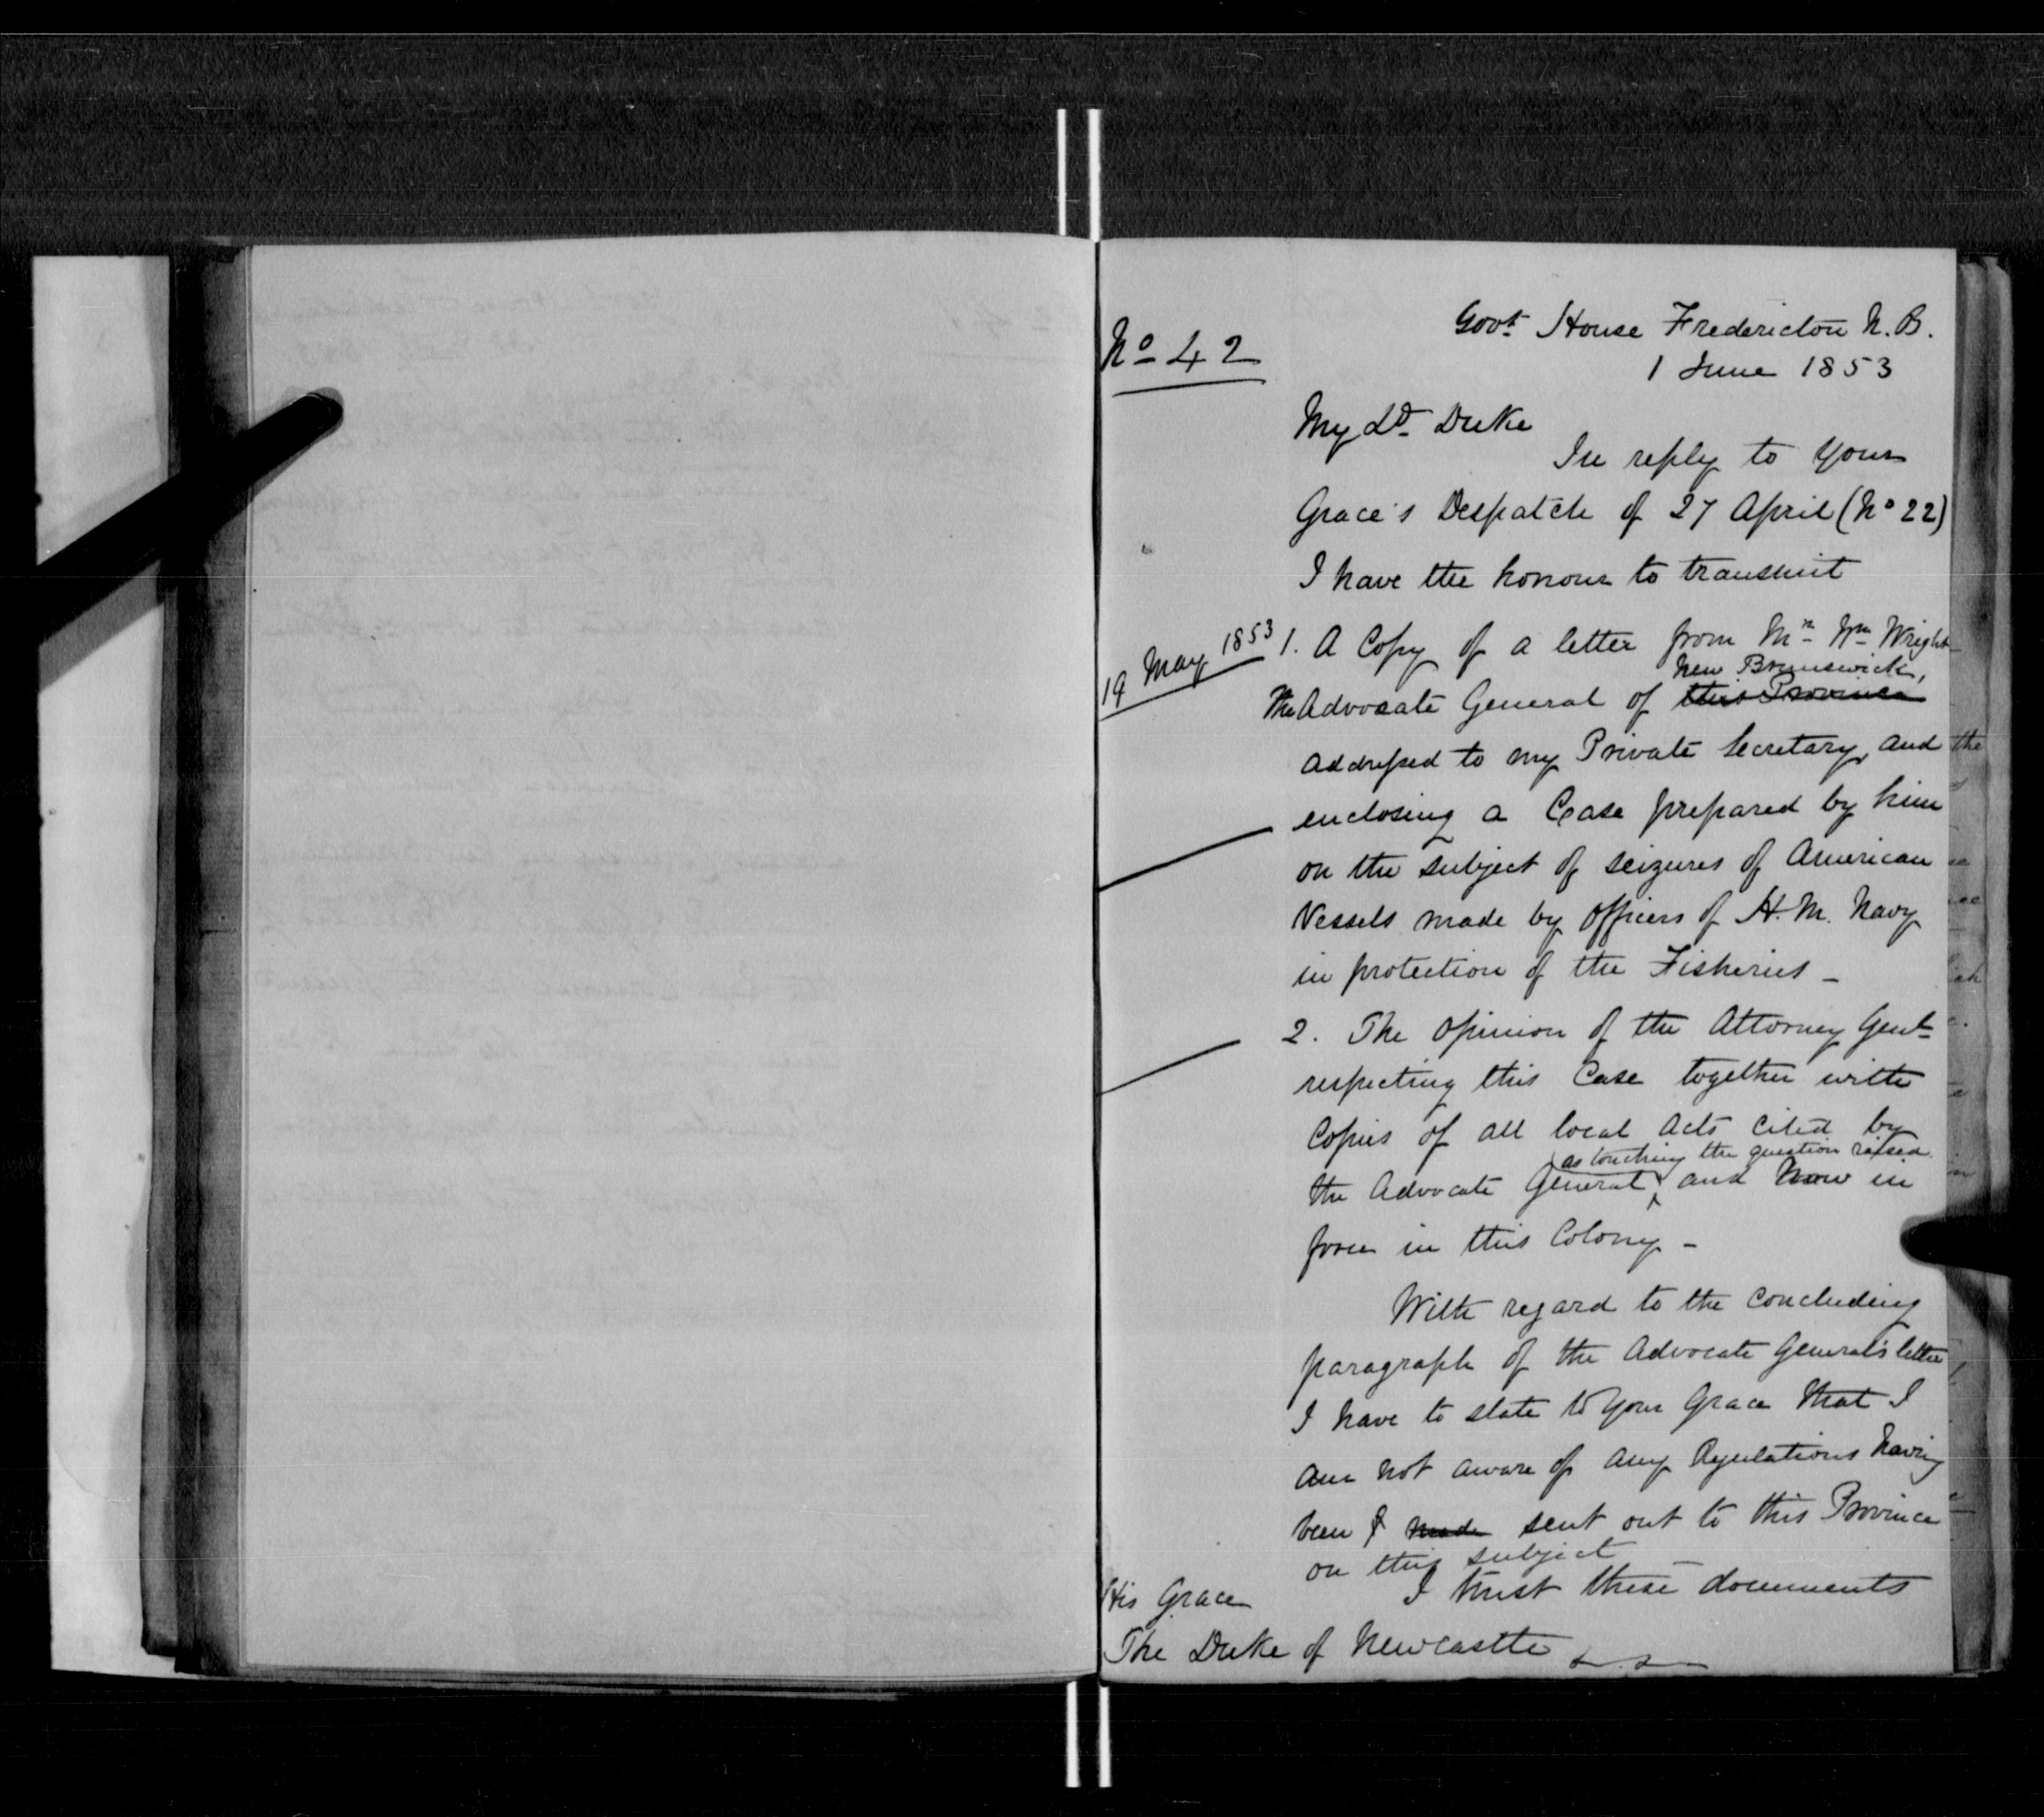 No 42
Govt House Fredericton N.B.
1 June 1853
My Ld Duke
In reply to Your
Grace's Despatch of 27 April (No 22)
I have the honour to transmit
19 May 1853
1. A Copy of a letter from Mr Wm Wright
New Brunswick,
the Advocate General of this Province
addressed to my Private Secretary, and
enclosing a Case prepared by him
on the subject of seizures of American
Vessels made by officers of H.M. Navy
in protection of the Fisheries -
2. The opinion of the Attorney Genl
respecting this Case together with
Copies of all local Acts cited by
as touching the question raised
the Advocate General, and now in
force in this Colony -
With regard to the concluding
paragraph of the Advocate General's letter
I have to state to Your Grace that I
am not aware of any Regulations having
been made sent out to this Province
on this subject
I trust these documents
His Grace
The Duke of Newcastle